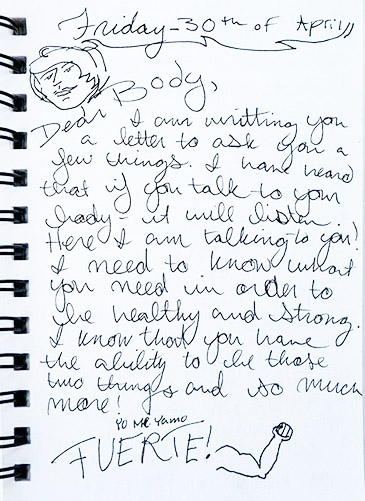 Friday - 30th of April
Dear Body,
I am writting you
a letter to ask you a
few things. I have heard
that if you talk to your
body - it will listen.
Here I am talking to you!
I need to know what
you need in order to
be healthy and strong.
I know that you have
the ability to be those
two things and so much
more!
Yo Me Llamo
FUERTE!